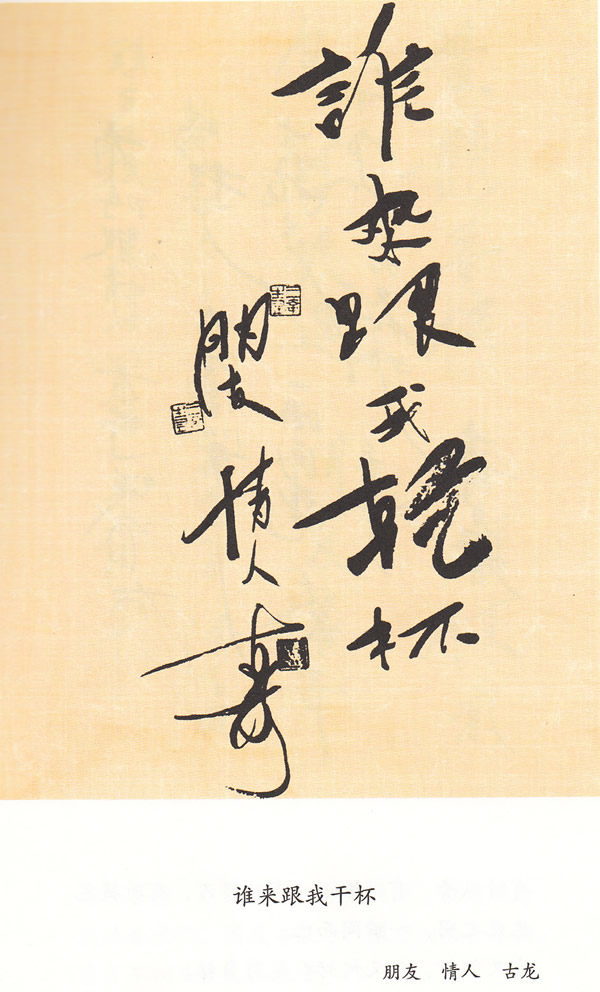 誰來跟我乾杯
朋友 情人 古龍
谁来跟我干杯
朋友 情人 古龙